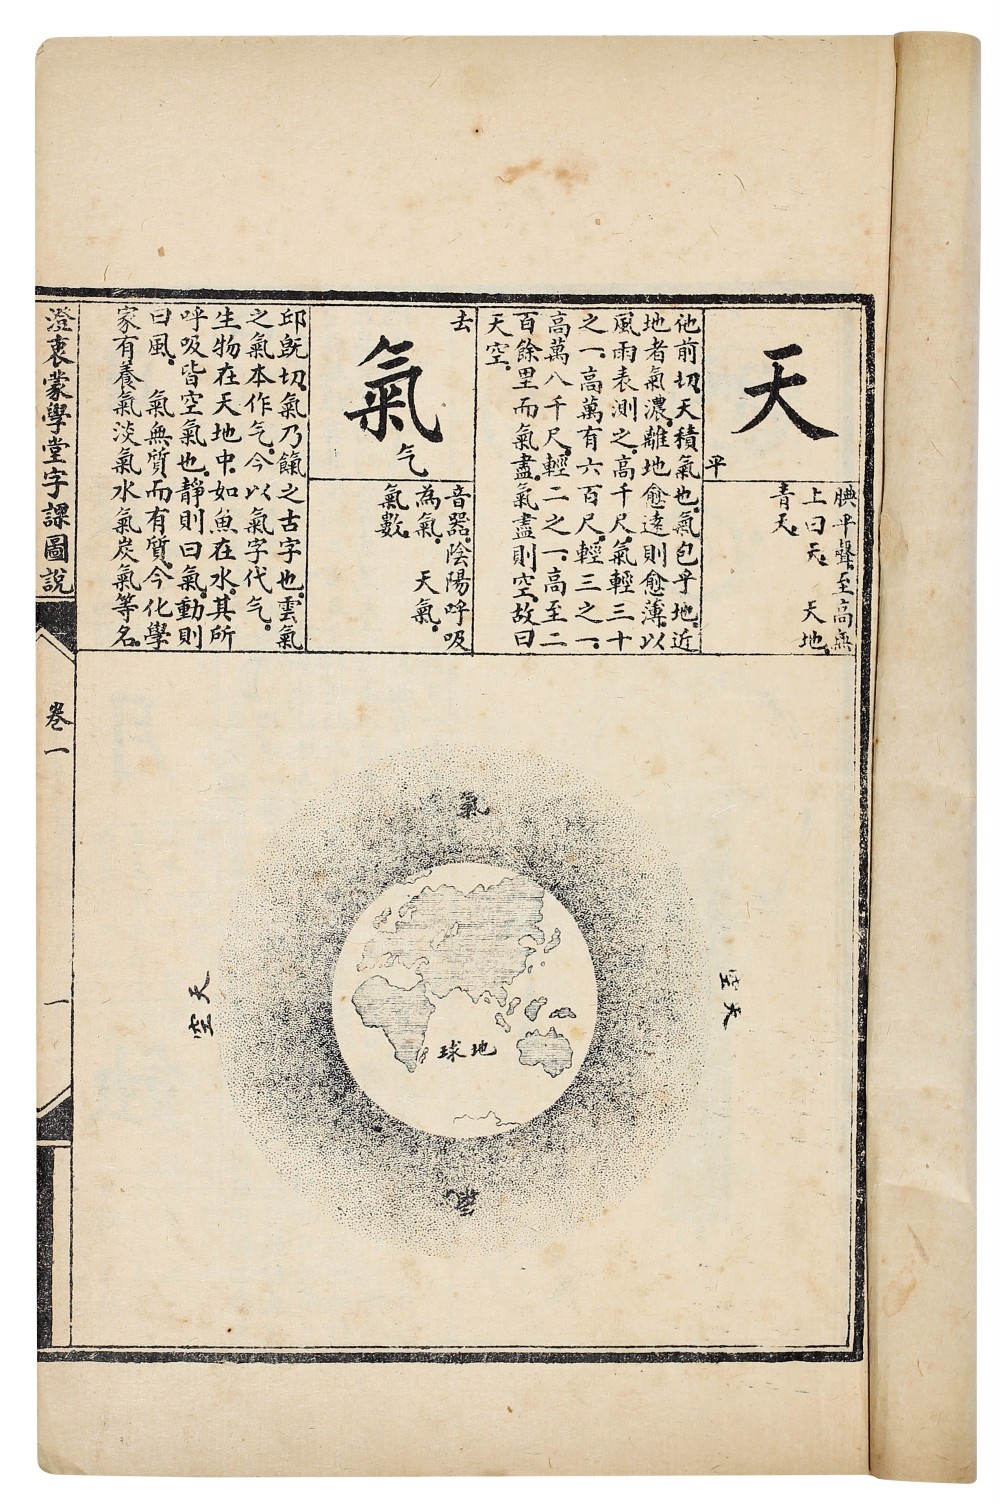 天
平
腆平聲至高無
上曰天 天地
青天
他前切天積氣也氣包乎地近
地者氣濃離地愈遠則愈薄以
風雨表測之高千尺氣輕三十
之一高萬有六百尺輕三之一
高萬八千尺輕二之一高至二
百餘里而氣盡氣盡則空故曰
天空
去
氣
气
音器陰陽呼吸
為氣 天氣
氣數
邱旣切氣乃餼之古字也雲氣
之氣本作气今以氣字代气
生物在天地中如魚在水其所
呼吸皆空氣也靜則曰氣動則
曰風 氣無質而有質今化學
家有養氣淡氣水氣炭氣等名
澄衷蒙學堂字課圖說
卷一
一
氣
天空
地球
天空
氣